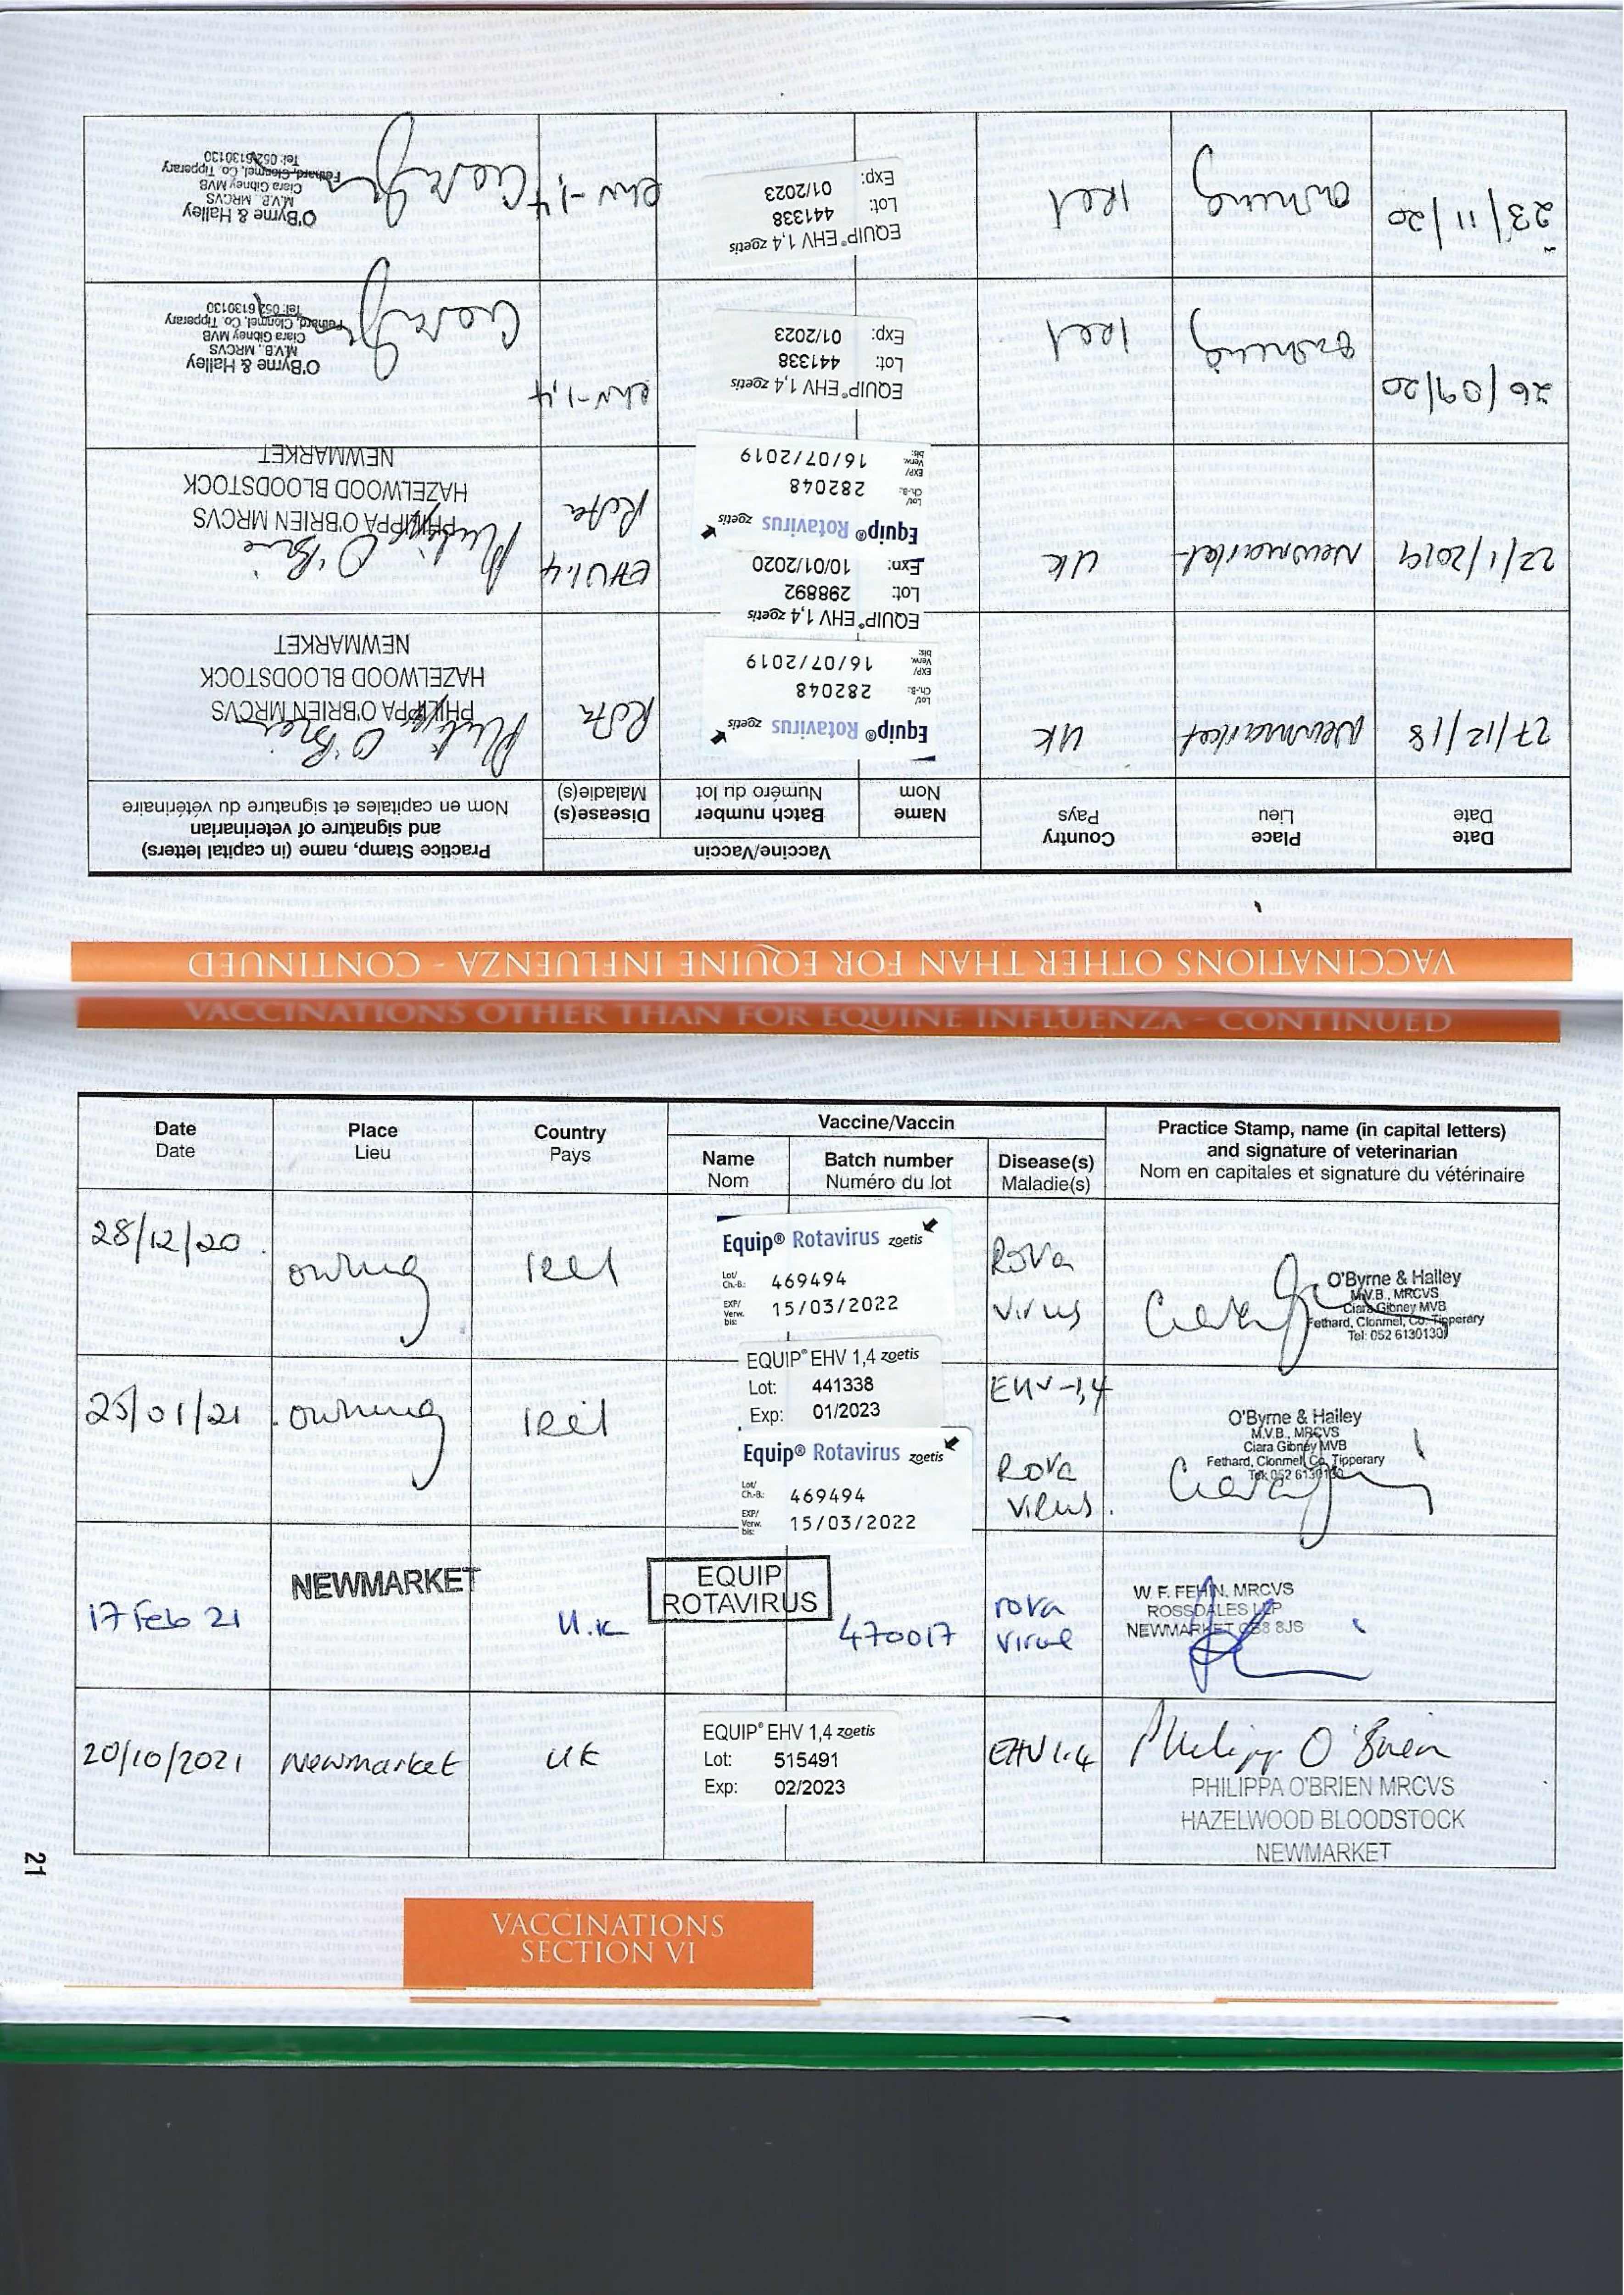 VACCINATIONS OTHER THAN FOR EQUINE INFLUENZA - CONTINUED
Date
Date
Place
Lieu
Country
Pays
Vaccine/Vaccin
Name
Nom
Batch number
Numéro du lot
Disease(s)
Maladie(s)
Practice Stamp, name (in capital letters)
and signature of veterinarian
Nom en capitales et signature du vétérinaire
27/12/18
Newmarket
UK
Equip® Rotavirus zoetis
Lot/
Ch.-B.: 282048
EXP/
Verw.
bis: 16/07/2019
Rota
Philippa O'Brien
PHILIPPA O'BRIEN MRCVS
HAZELWOOD BLOODSTOCK
NEWMARKET
22/1/2019
Newmarket
UK
EQUIP® EHV 1,4 zoetis
Lot: 298892
Exp: 10/01/2020
Equip® Rotavirus zoetis
Lot/
Ch.-B.: 282048
EXP/
Verw.
bis: 16/07/2019
EHV1.4
Rota
Philippa O'Brien
PHILIPPA O'BRIEN MRCVS
HAZELWOOD BLOODSTOCK
NEWMARKET
26/09/20
owning
Irel
EQUIP® EHV 1,4 zoetis
Lot: 441338
Exp: 01/2023
ehv-1,4
O'Byrne & Halley
M.V.B., MRCVS
Ciara Gibney MVB
Fethard, Clonmel, Co. Tipperary
Tel: 052 6130130
23/11/20
owning
Irel
EQUIP® EHV 1,4 zoetis
Lot: 441338
Exp: 01/2023
ehv-1,4
O'Byrne & Halley
M.V.B., MRCVS
Ciara Gibney MVB
Fethard, Clonmel, Co. Tipperary
Tel: 052 6130130
VACCINATIONS OTHER THAN FOR EQUINE INFLUENZA - CONTINUED
Date
Date
Place
Lieu
Country
Pays
Vaccine/Vaccin
Name
Nom
Batch number
Numéro du lot
Disease(s)
Maladie(s)
Practice Stamp, name (in capital letters)
and signature of veterinarian
Nom en capitales et signature du vétérinaire
28/12/20
owning
Irel
Equip® Rotavirus zoetis
Lot/
Ch.-B.: 469494
EXP/
Verw.
bis: 15/03/2022
Rota
virus
O'Byrne & Halley
M.V.B., MRCVS
Ciara Gibney MVB
Fethard, Clonmel, Co. Tipperary
Tel: 052 6130130
25/01/21
owning
Irel
EQUIP® EHV 1,4 zoetis
Lot: 441338
Exp: 01/2023
Equip® Rotavirus zoetis
Lot/
Ch.-B.: 469494
EXP/
Verw.
bis: 15/03/2022
EHV-1,4
Rota
virus.
O'Byrne & Halley
M.V.B., MRCVS
Ciara Gibney MVB
Fethard, Clonmel, Co. Tipperary
Tel: 052 6130130
17 Feb 21
NEWMARKET
U.K
EQUIP
ROTAVIRUS
470017
rota
W. F. FEHIN. MRCVS
ROSSDALES LLP
NEWMARKET CB8 8JS
20/10/2021
Newmarket
UK
EQUIP® EHV 1,4 zoetis
Lot: 515491
Exp: 02/2023
EHV 1.4
Philippa O'Brien
PHILIPPA O'BRIEN MRCVS
HAZELWOOD BLOODSTOCK
NEWMARKET
21
VACCINATIONS
SECTION VI